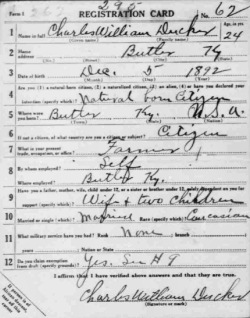 Form 1
REGISTRATION CARD
No. 62
1 Name in full Charles William Ducker
(Given name) (Family name)
Age, in yrs. 24
2 Home address Butler Ky
3 Date of birth Dec. 5 1892
(Month) (Day) (Year)
4 Are you (1) a natural-born citizen, (2) a naturalized citizen, (3) an alien, (4) or have you declared your
intention (specify which)? Natural born Citizen
5 Where were you born? Butler Ky. U.S.A.
(Town) (State) (Nation)
6 If not a citizen, of what country are you a citizen or subject? Citizen
7 What is your present trade, occupation, or office? Farmer
8 By whom employed? Self
Where employed? Butler Ky.
9 Have you a father, mother, wife, child under 12, or a sister or brother under 12, solely dependent on you for
support (specify which)? Wife + two Children
10 Married or single (which)? Married Race (specify which)? Caucasian
11 What military service have you had? Rank None branch
years Nation or State
12 Do you claim exemption from draft (specify grounds)? Yes. See # 9
I affirm that I have verified above answers and that they are true.
Charles William Ducker